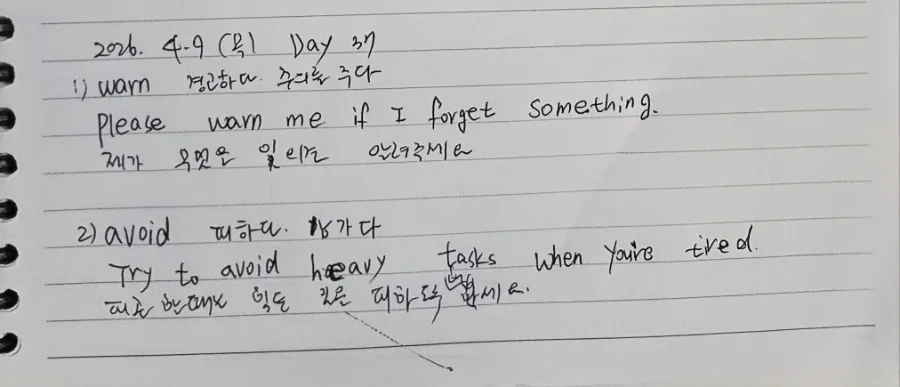 2026. 4.9 (목) Day 37
1) warn 경고하다. 주의를 주다
Please warn me if I forget something.
제가 무엇을 잊으면 알려주세요
2) avoid 피하다.
Try to avoid heavy tasks when you're tired.
피곤할때는 힘든 일은 피하도록 하세요.